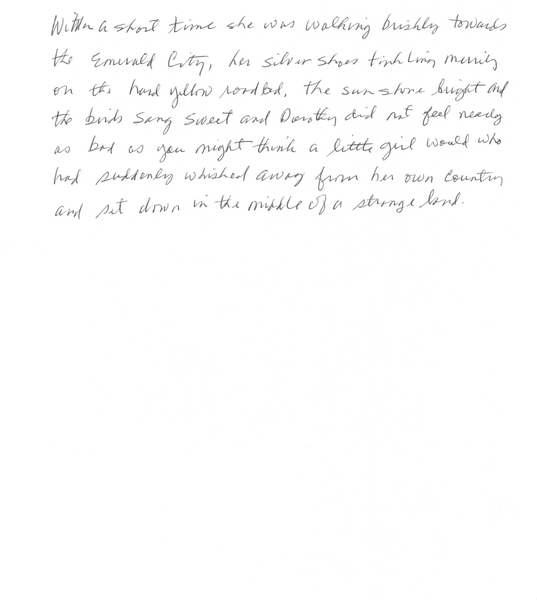 Within a short time she was walking briskly towards
the Emerald City, her silver shoes tinkling merrily
on the hard yellow roadbed. The sun shone bright and
the birds sang sweet and Dorothy did not feel nearly
as bad as you might think a little girl would who
had suddenly whisked away from her own country
and set down in the middle of a strange land.